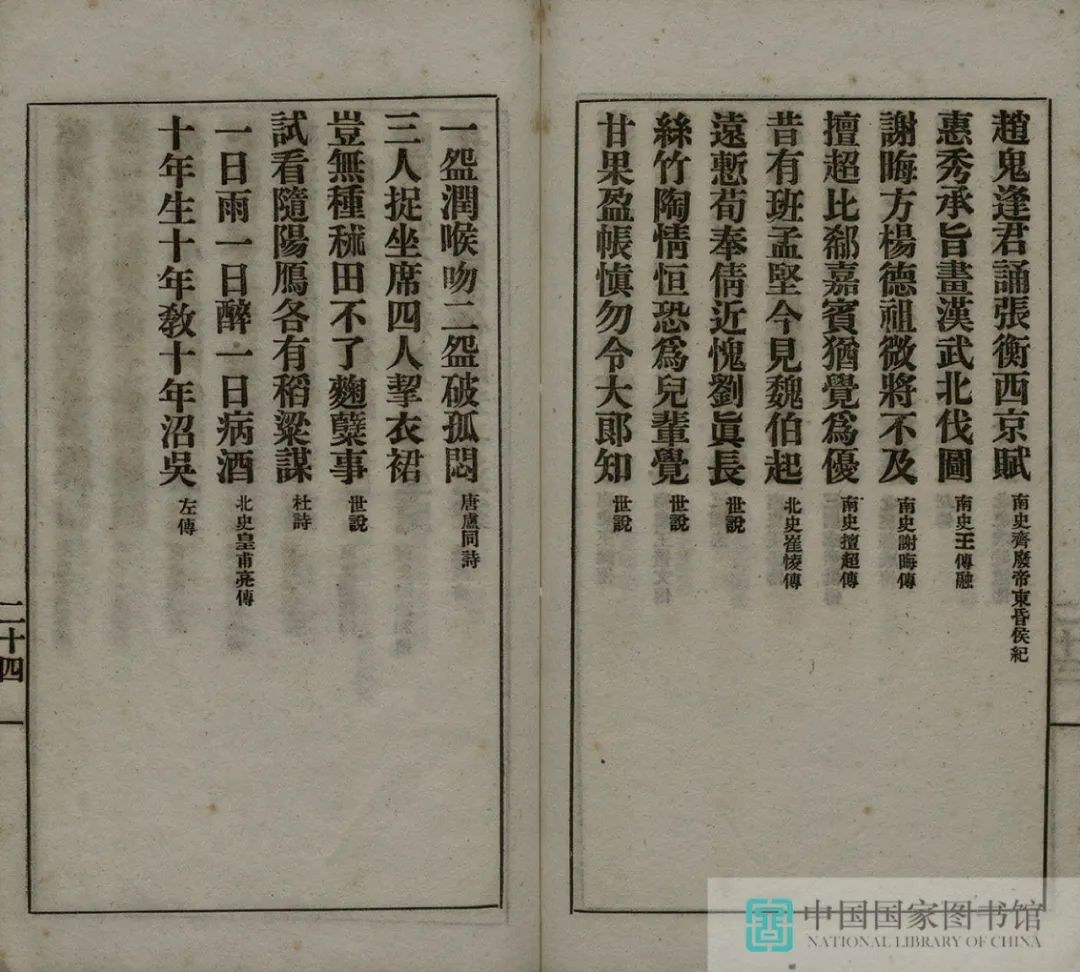 趙鬼逢君誦張衡西京賦 南史齊廢帝東昏侯紀
惠秀承旨畫漢武北伐圖 南史王傳融
謝晦方楊德祖微將不及 南史謝晦傳
擅超比郗嘉賓猶覺爲優 南史擅超傳
昔有班孟堅今見魏伯起 北史崔㥄傳
遠慙荀奉倩近愧劉眞長 世說
絲竹陶情恒恐爲兒輩覺 世說
甘果盈帳慎勿令大郎知 世說
一盌潤喉吻二盌破孤悶 唐盧同詩
三人捉坐席四人挈衣裙
豈無種秫田不了麴糵事 世說
試看隨陽鴈各有稻粱謀 杜詩
一日雨一日醉一日病酒 北史皇甫亮傳
十年生十年教十年沼吳 左傳
二十四
中国国家图书馆
NATIONAL LIBRARY OF CHINA